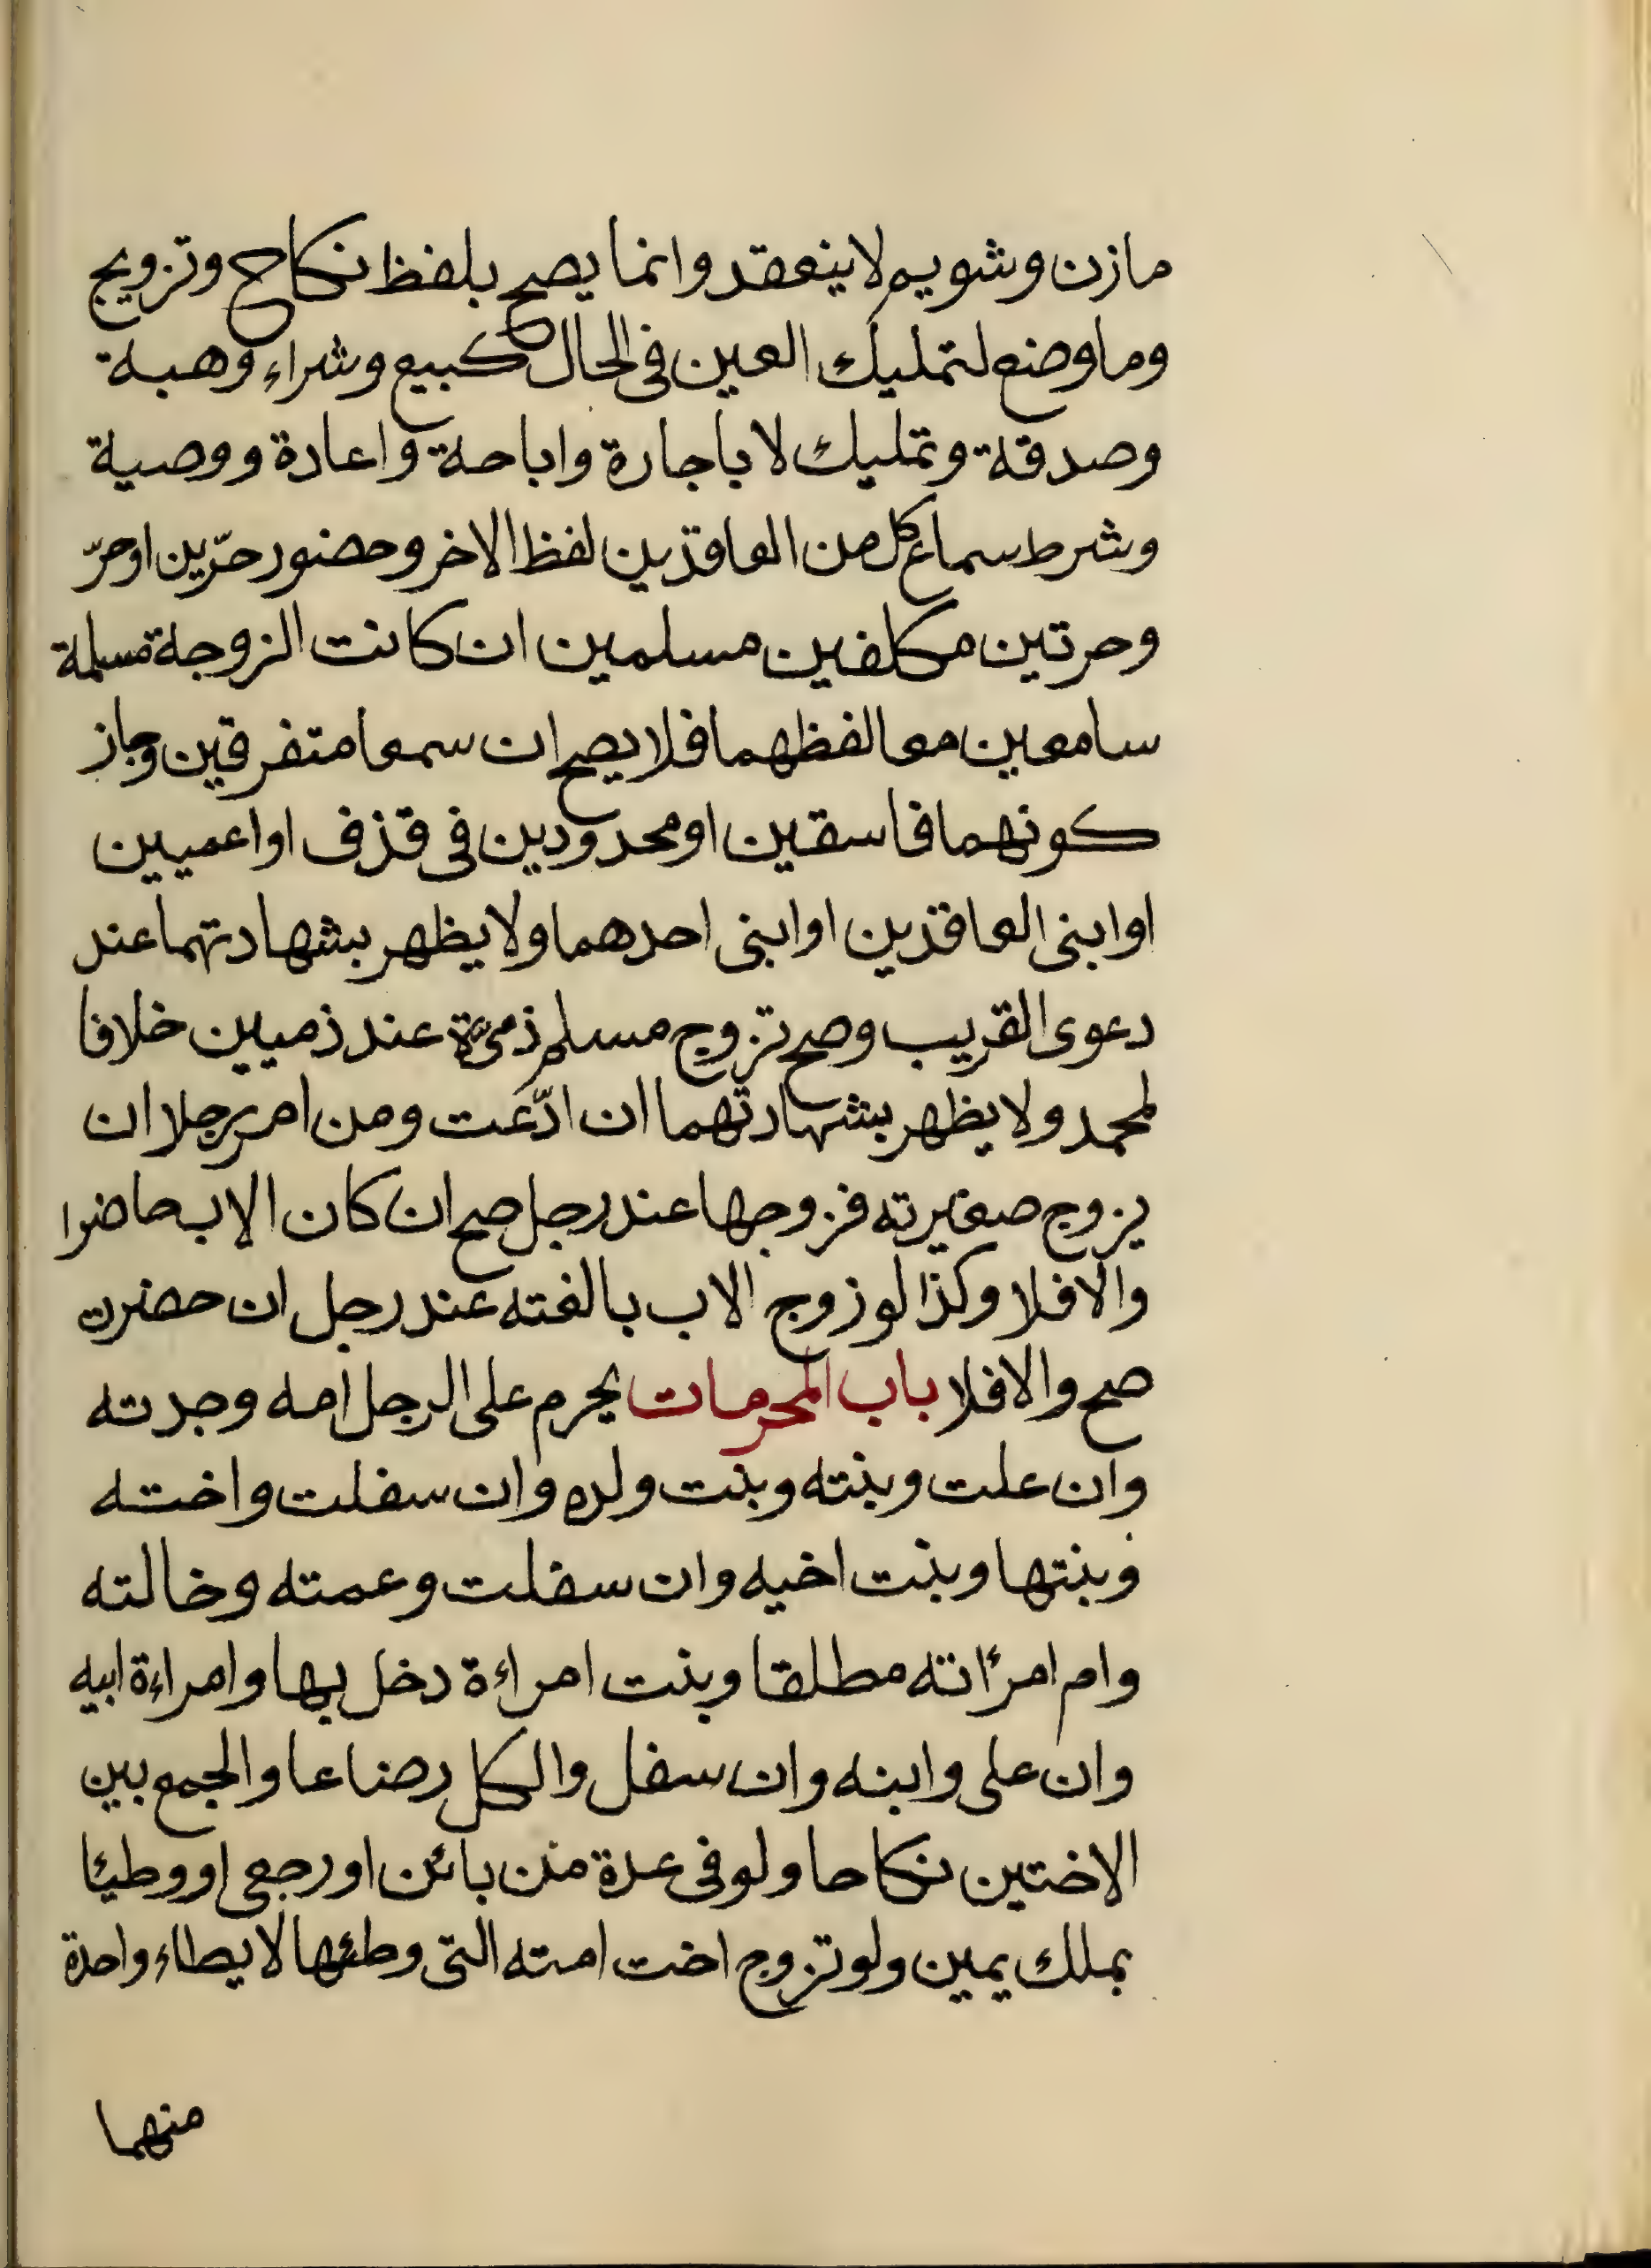 مازن وشويم لا ينعقد وانما يصح بلفظ نكاح وتزويج
وما وضع لتمليك العين فى الحال كبيع وشراء وهبة
وصدقة وتمليك لا باجارة واباحة واعادة ووصية
وشرط سماع كل من العاقذين لفظ الاخر وحضور حرّين اوحرّ
وحرتين مكلفين مسلمين ان كانت الزوجة مسلمة
سامعين معا لفظهما فلا يصح ان سمعا متفرقين وجاز
كونهما فاسقين او محدودين فى قذف او اعميين
او ابنى العاقذين او ابنى احدهما ولا يظهر بشهادتهما عند
دعوى القريب وصح تزوج مسلم ذمية عند ذميين خلافا
لمحمد ولا يظهر بشهادتهما ان ادّعت ومن امر رجلا ان
يزوج صغيرته فزوجها عند رجل صح ان كان الاب حاضرا
والا فلا وكذا لو زوج الاب بالغته عند رجل ان حضرت
صح والا فلا باب المحرمات يحرم على الرجل امه وجدته
وان علت وبنته وبنت ولده وان سفلت واخته
وبنتها وبنت اخيه وان سفلت وعمته وخالته
وام امرأته مطلقا وبنت امراءة دخل بها وامراءة ابيه
وان على وابنه وان سفل والكل رضاعا والجمع بين
الاختين نكاحا ولو فى عدة من بائن او رجعى او وطيئا
بملك يمين ولو تزوج اخت امته التى وطئها لا يطاء واحدة
منهما